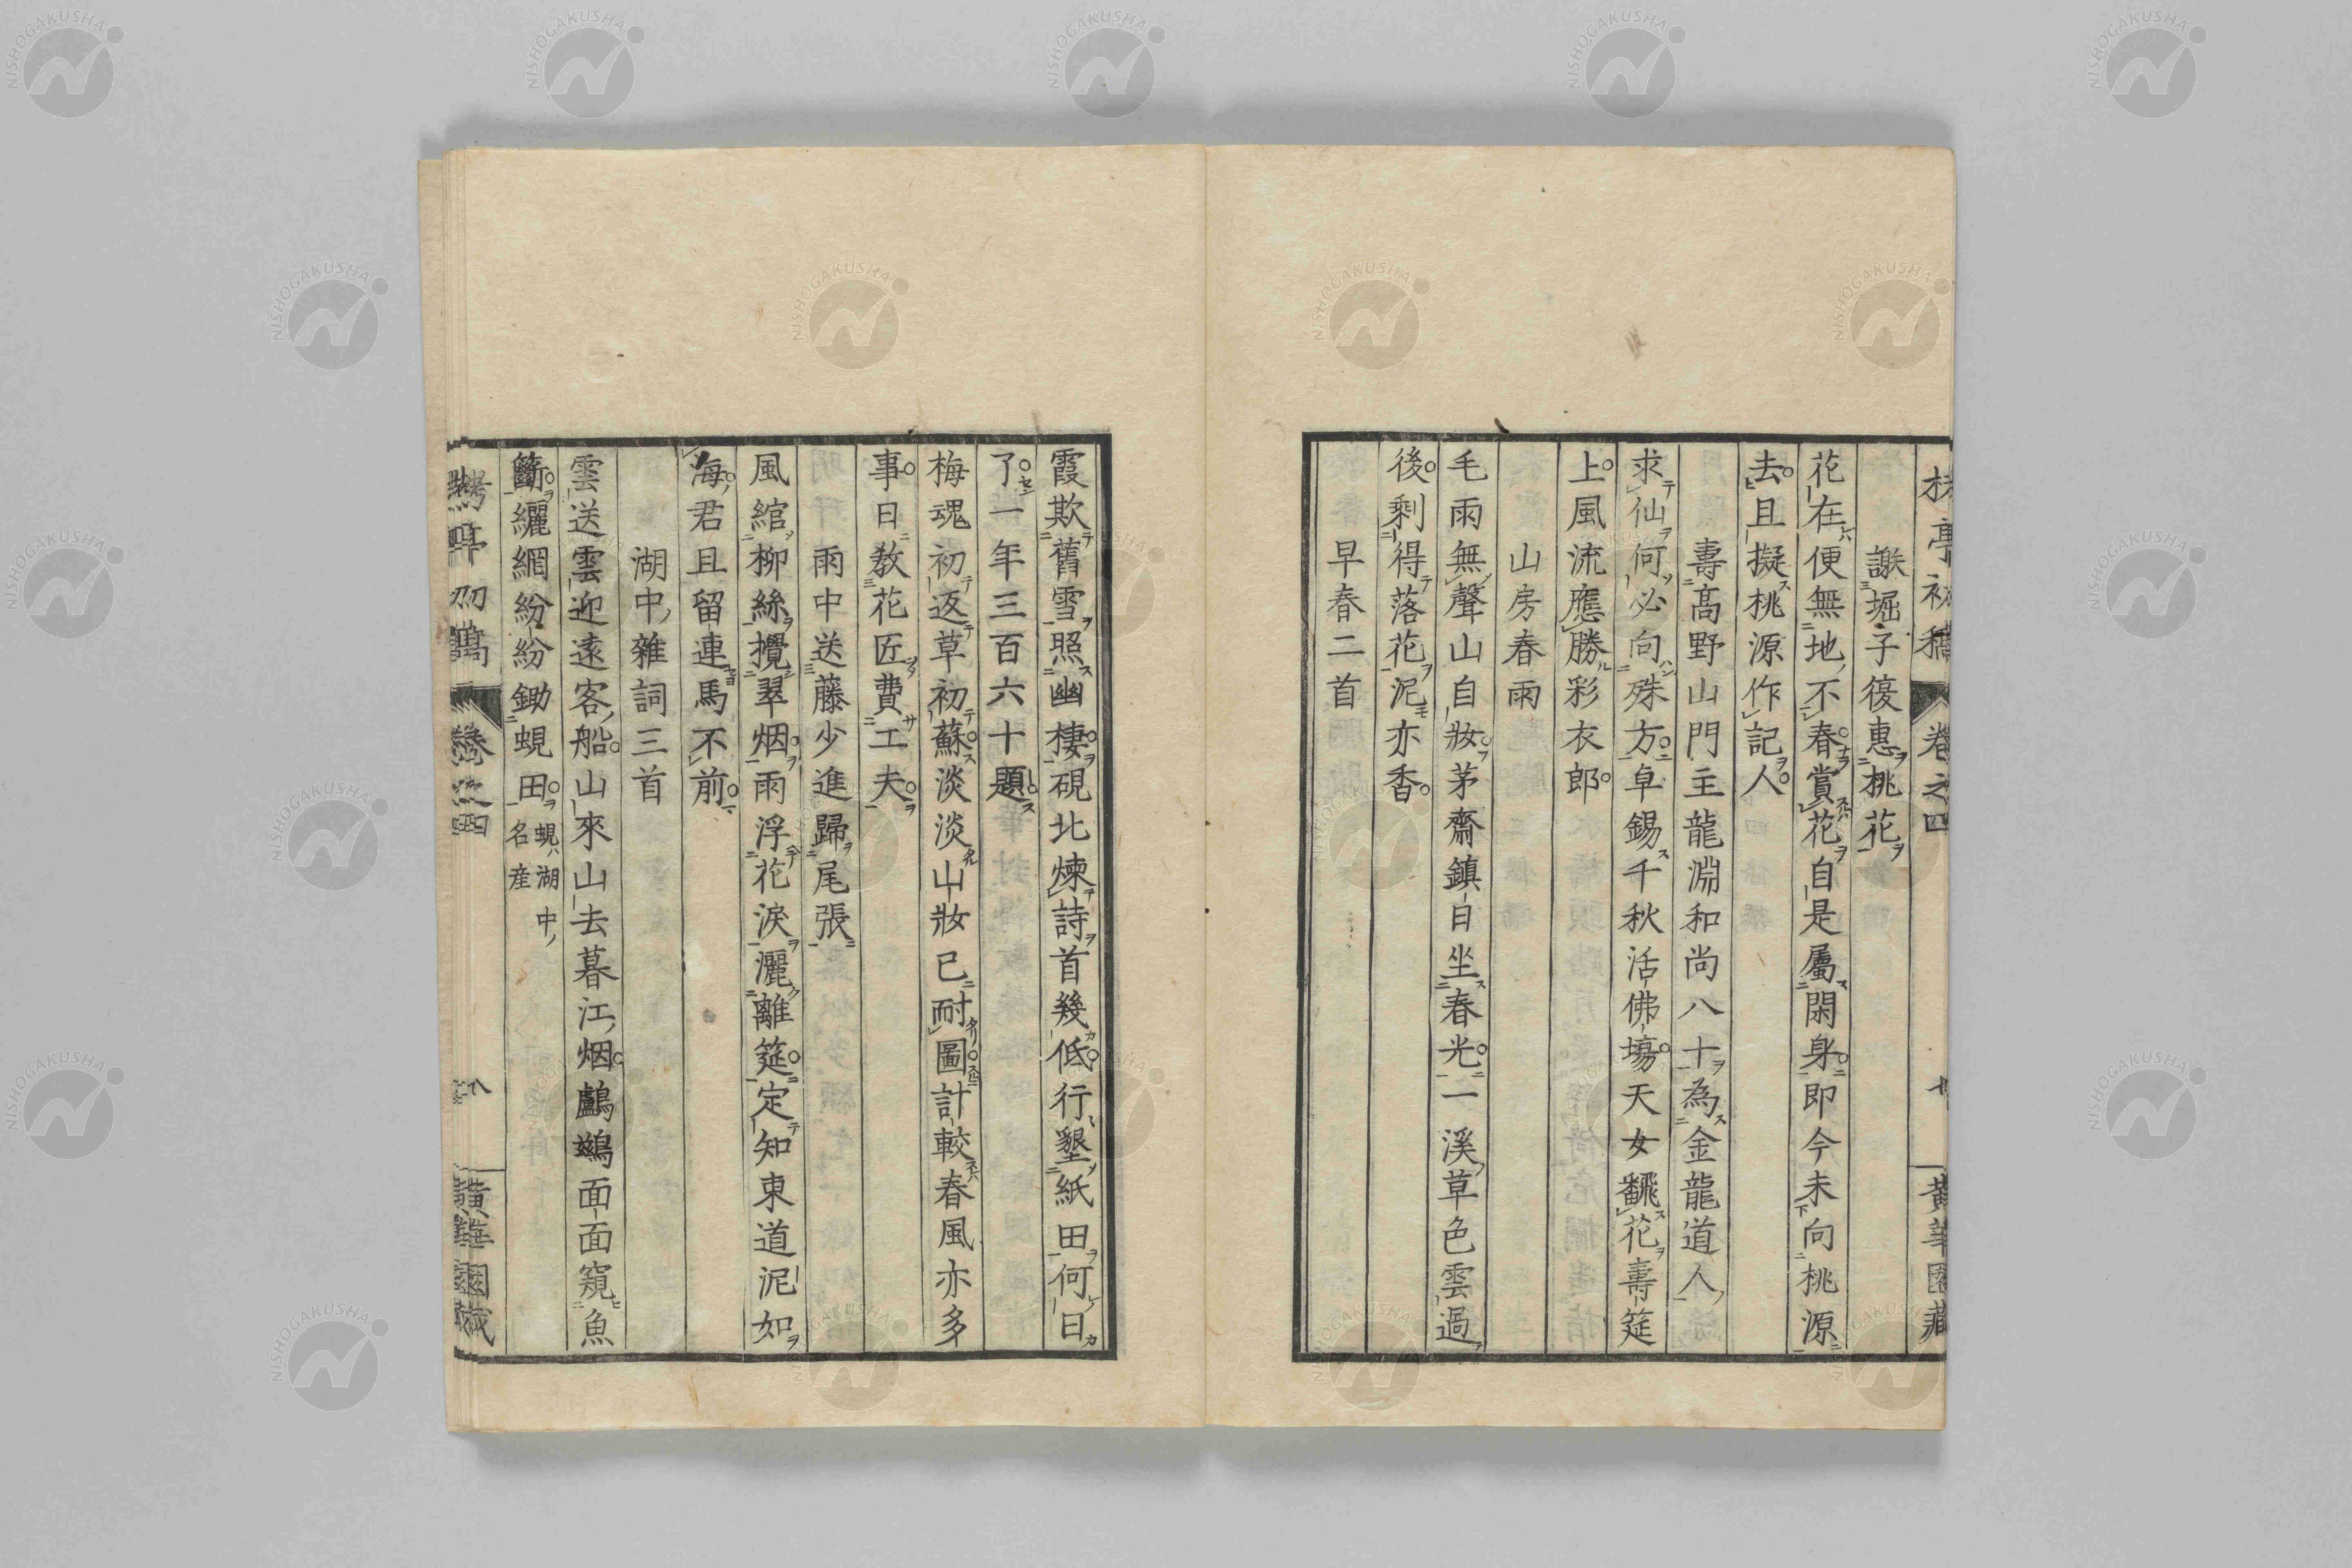 謝堀子復惠桃花
花在便無地不春賞花自是屬閑身即今未向桃源
去且擬桃源作記人
壽高野山門主龍淵和尚八十為金龍道人
求仙何必向殊方卓錫千秋活佛場天女飜花壽筵
上風流應勝彩衣郎
山房春雨
毛雨無聲山自妝茅齋鎮日坐春光一溪草色雲過
後剩得落花泥亦香
早春二首
霞欺舊雪照幽棲硯北煉詩首幾低行墾紙田何日
了一年三百六十題
梅魂初返草初蘇淡淡山妝已耐圖計較春風亦多
事日教花匠費工夫
雨中送藤少進歸尾張
風綰柳絲攪翠烟雨浮花淚灑離筵定知東道泥如
海君且留連馬不前
湖中雜詞三首
雲送雲迎遠客船山來山去暮江烟鸕鷀面面窺魚
籪纚網紛紛鋤蜆田蜆湖中
名産
卷之四
八
NISHOGAKUSHA